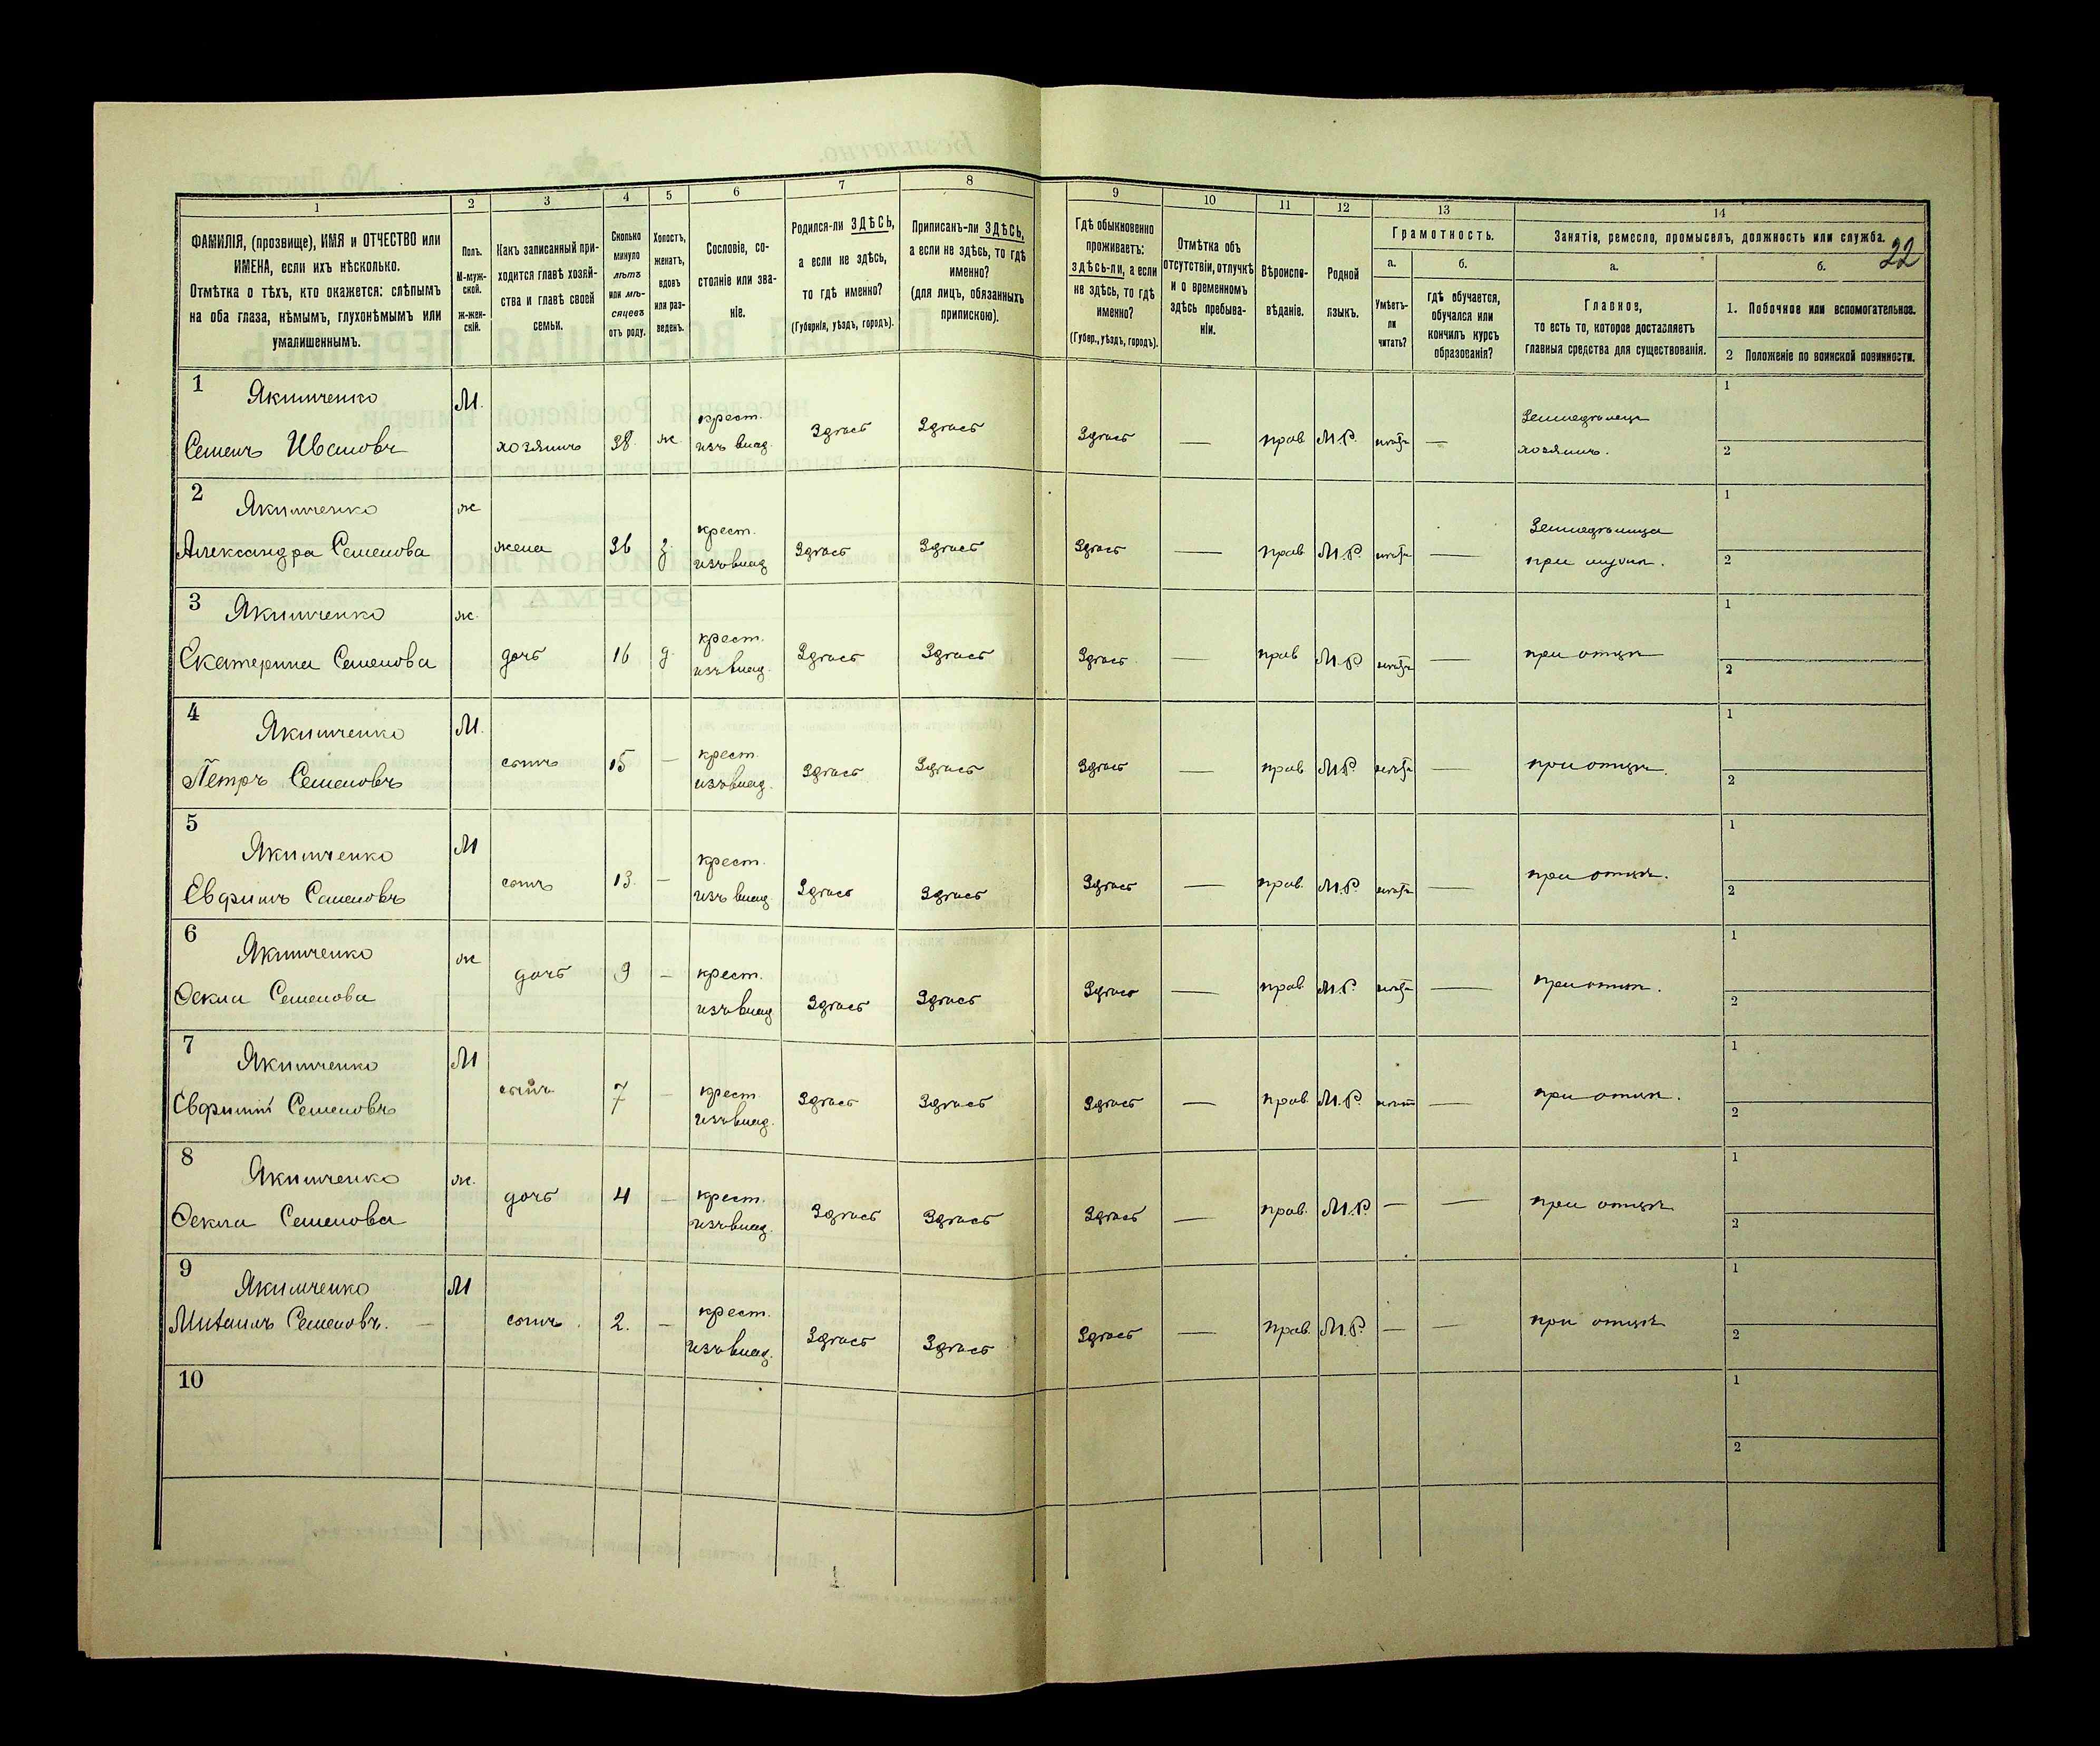 22
1
2
3
4
5
6
7
8
9
10
11
12
13
14
ФАМИЛІЯ, (прозвище), ИМЯ и ОТЧЕСТВО или
ИМЕНА, если ихъ нѣсколько.
Отмѣтка о тѣхъ, кто окажется: слѣпымъ
на оба глаза, нѣмымъ, глухонѣмымъ или
умалишеннымъ.
Полъ.
М-муж-
ской.
ж-жен-
скій.
Какъ записанный при-
ходится главѣ хозяй-
ства и главѣ своей
семьи.
Сколько
минуло
лѣтъ
или мѣ-
сяцевъ
отъ роду.
Холостъ,
женатъ,
вдовъ
или раз-
веденъ.
Сословіе, со-
стояніе или зва-
ніе.
Родился-ли ЗДѢСЬ,
а если не здѣсь,
то гдѣ именно?
(Губернія, уѣздъ, городъ).
Приписанъ-ли ЗДѢСЬ,
а если не здѣсь, то гдѣ
именно?
(для лицъ, обязанныхъ
припискою).
Гдѣ обыкновенно
проживаетъ:
здѣсь-ли, а если
не здѣсь, то гдѣ
именно?
(Губер., уѣздъ, городъ).
Отмѣтка объ
отсутствіи, отлучкѣ
и о временномъ
здѣсь пребыва-
ніи.
Вѣроиспо-
вѣданіе.
Родной
языкъ.
Грамотность.
а.
Умѣетъ-
ли
читать?
б.
гдѣ обучается,
обучался или
кончилъ курсъ
образованія?
Занятія, ремесло, промыселъ, должность или служба.
а.
Главное,
то есть то, которое доставляетъ
главныя средства для существованія.
б.
1. Побочное или вспомогательное.
2 Положеніе по воинской повинности.
1 Якимченко М.
Семенъ Ивановъ хозяинъ 38. ж. крест. изъ влад. Здѣсь Здѣсь Здѣсь — прав М.Р. — Земледѣлецъ хозяинъ. 1 2
2 Якимченко ж
Александра Семенова жена 36 з. крест. изъ влад Здѣсь Здѣсь Здѣсь — прав М.Р. — при мужѣ. 1 2
3 Якимченко ж.
Екатерина Семенова дочь 16 д. крест. изъ влад. Здѣсь Здѣсь Здѣсь — прав М.Р. — при отцѣ 1 2
4 Якимченко М.
Петръ Семеновъ сынъ 15 — крест. изъ влад. Здѣсь Здѣсь Здѣсь — прав М.Р. — при отцѣ. 1 2
5 Якимченко М
Евфимъ Семеновъ сынъ 13. — крест. изъ влад Здѣсь Здѣсь Здѣсь — прав. М.Р. — при отцѣ. 1 2
6 Якимченко ж
Ѳекла Семенова дочь 9 — крест. изъ влад Здѣсь Здѣсь Здѣсь — прав. М.Р. — при отцѣ. 1 2
7 Якимченко М
Евфимій Семеновъ сынъ 7 — крест. изъ влад. Здѣсь Здѣсь Здѣсь — прав. М.Р. — при отцѣ. 1 2
8 Якимченко ж.
Ѳекла Семенова дочь 4 — крест. изъ влад. Здѣсь Здѣсь Здѣсь — прав. М.Р. — — при отцѣ 1 2
9 Якимченко М
Михаилъ Семеновъ. — сынъ. 2. — крест. изъ влад. Здѣсь Здѣсь Здѣсь — прав. М.Р. — — при отцѣ 1 2
10 1 2